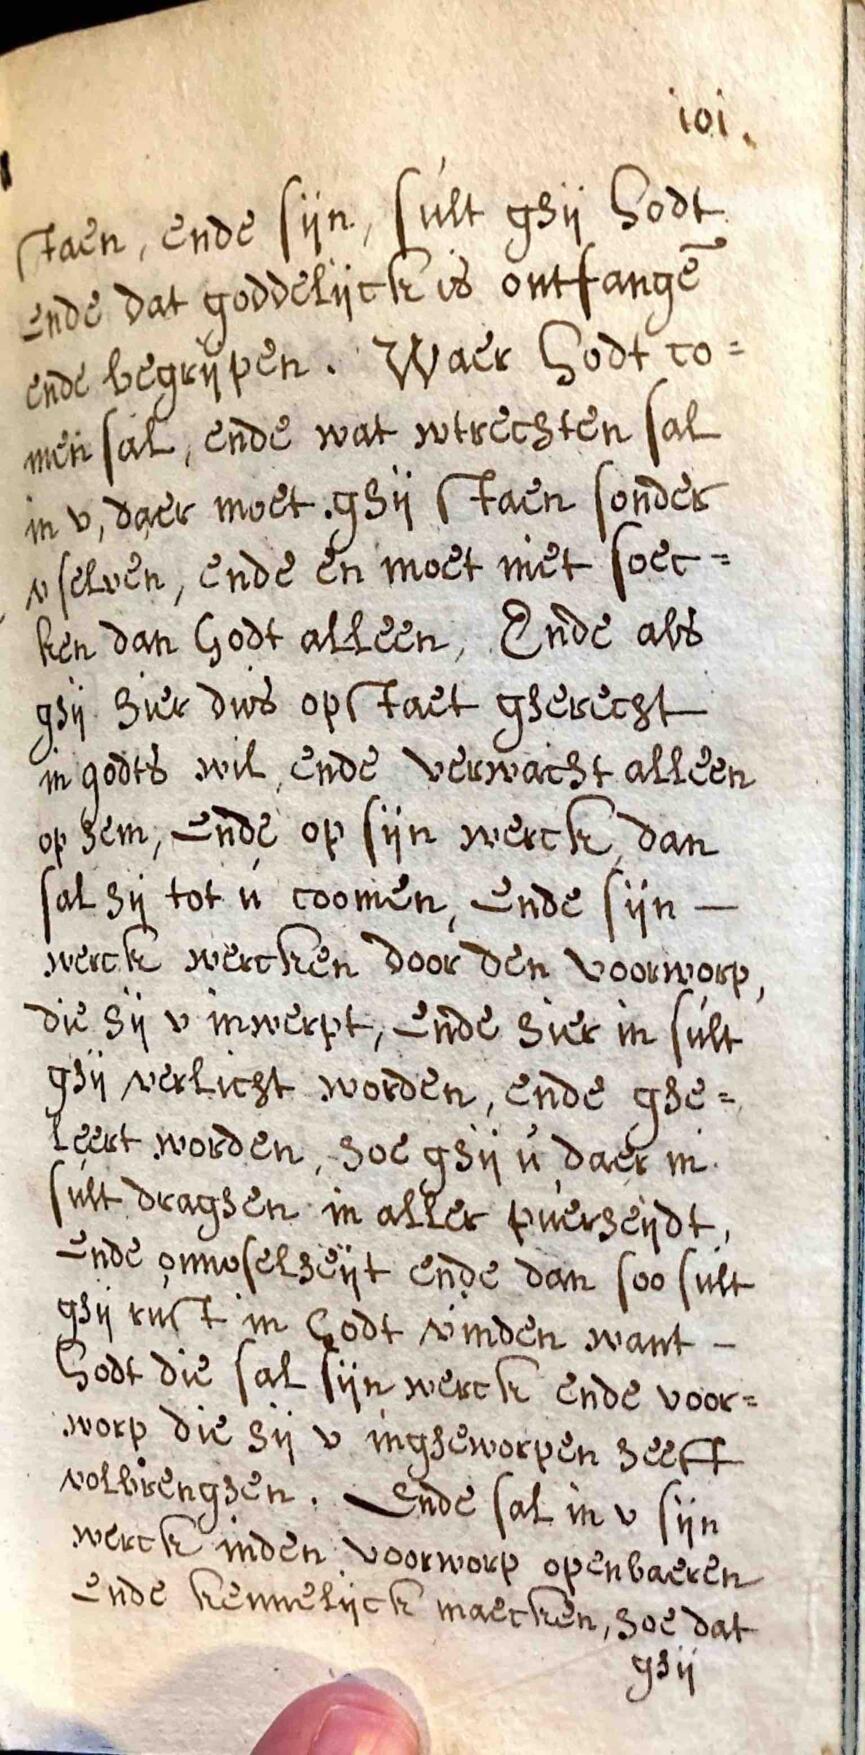 101.
staen, ende sijn, sult ghij Godt
ende dat goddelijck is ontfangē
ende begrijpen. Waer Godt co=
men sal, ende wat wtrechten sal
in v, daer moet ghij staen sonder
v selven, ende en moet niet soec=
ken dan Godt alleen, Ende als
ghij hier dus opstaet gherecht
in godts wil, ende verwacht alleen
op hem, Ende op sijn werck, dan
sal hij tot ú coomen, Ende sijn —
werck wercken door den voorworp,
die hij v inwerpt, Ende hier in sult
ghij verlicht worden, ende ghe=
leert worden, hoe ghij ú daer in
sult draghen in aller puerheijdt,
Ende onnoselheijt ende dan soo sult
ghij rust in Godt vinden want —
Godt die sal sijn werck ende voor=
worp die hij v ingheworpen heeft
volbrenghen. Ende sal in v sijn
werck inden voorworp openbaeren
Ende kennelijck maecken, hoe dat
ghij